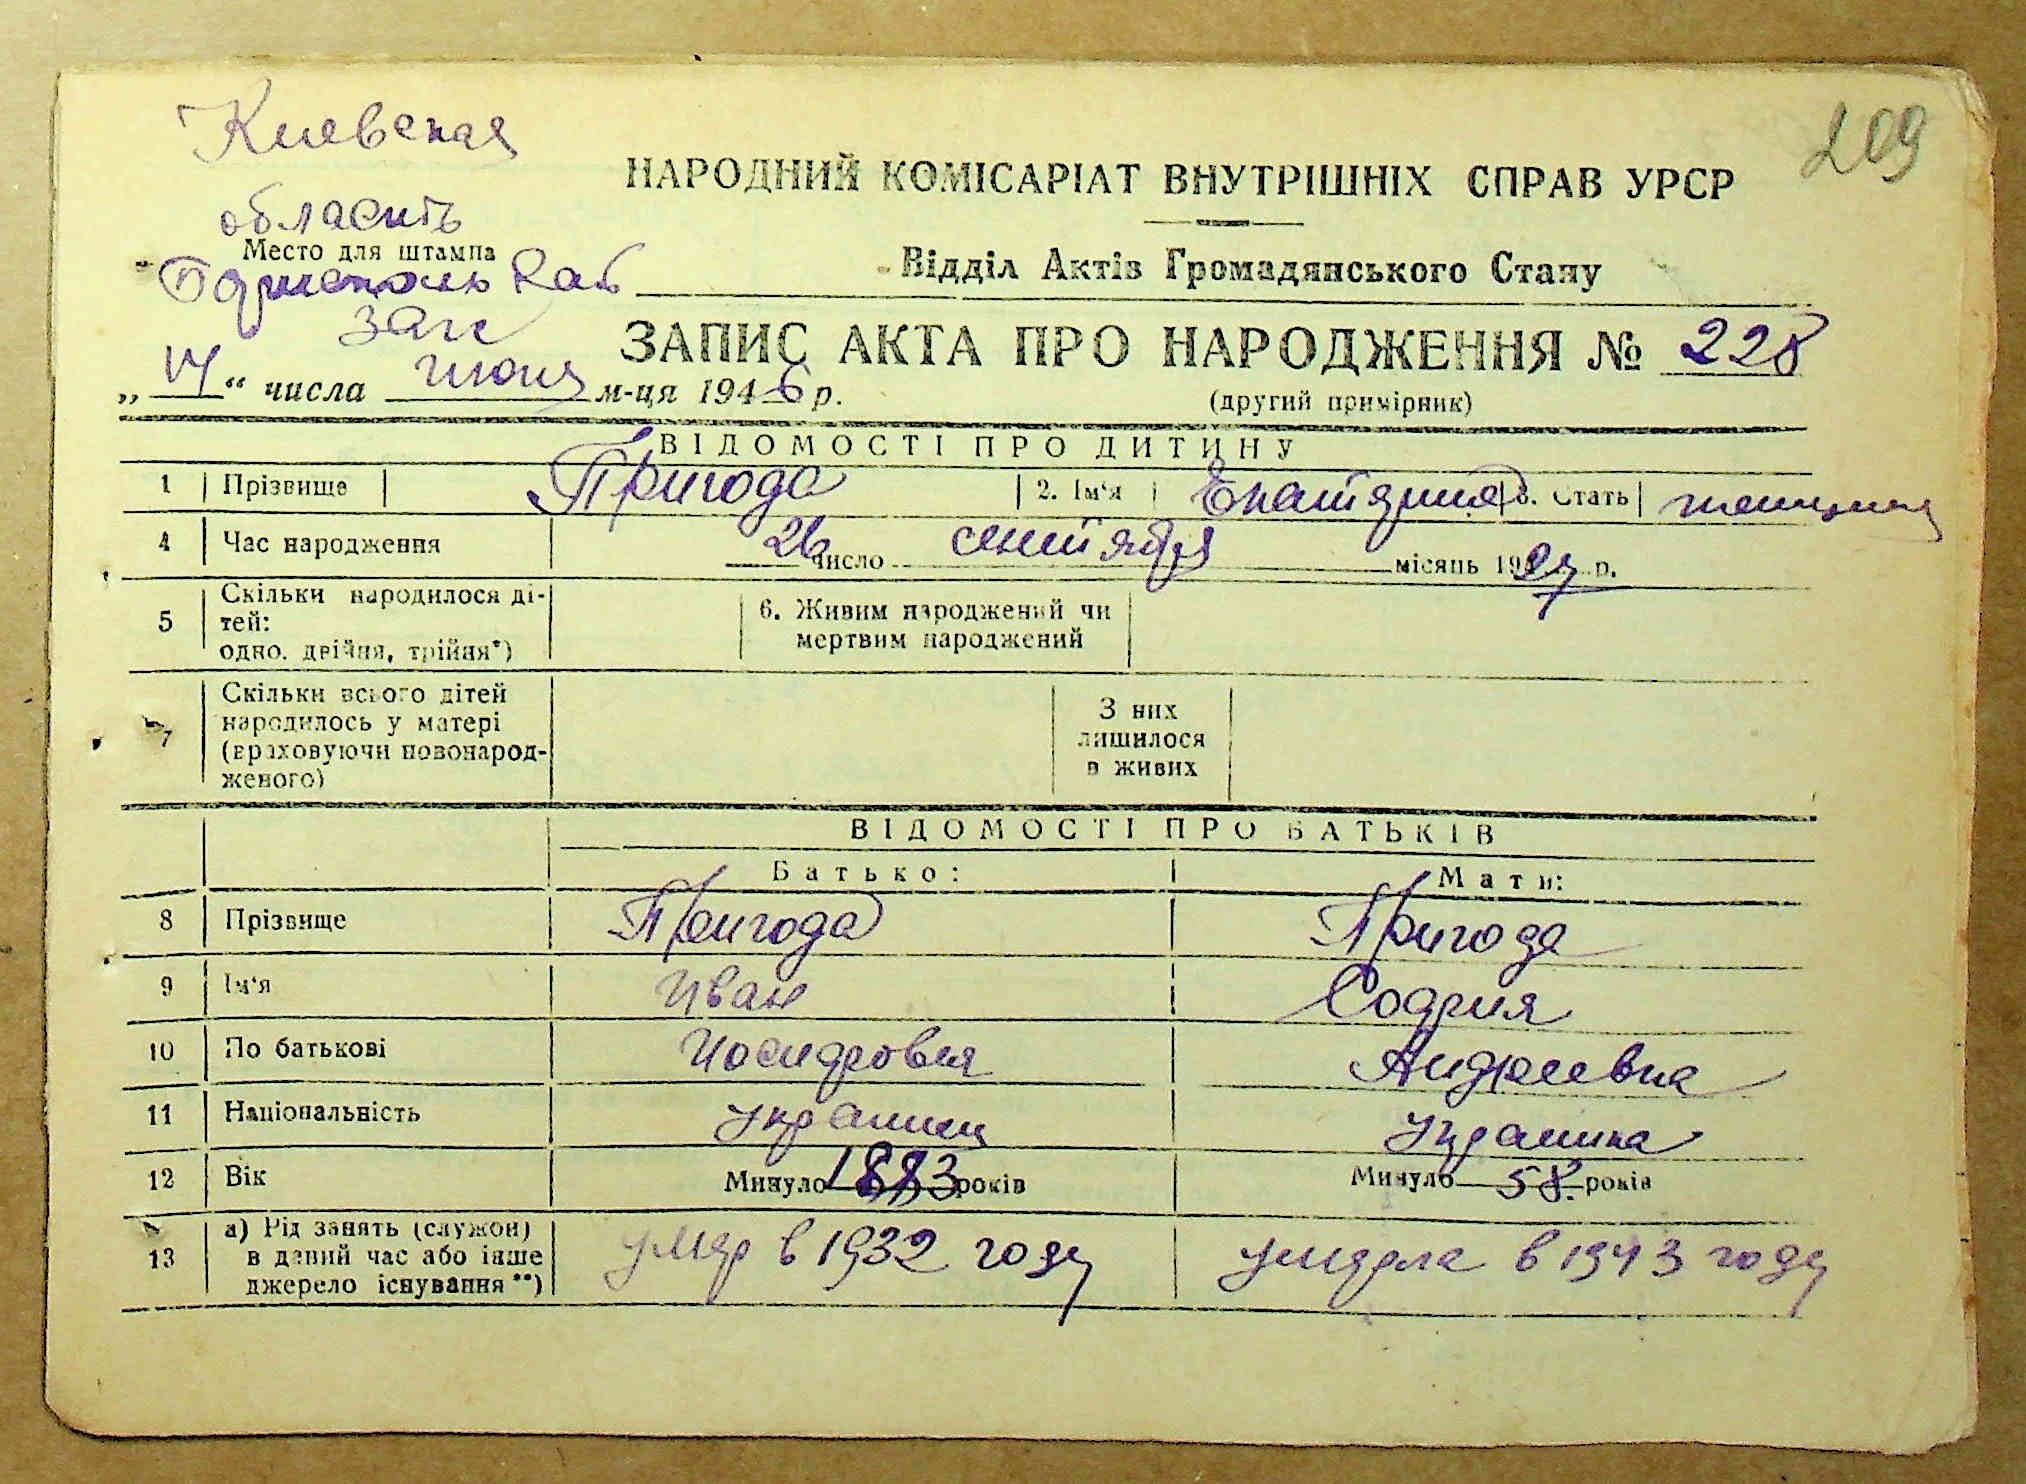 Киевская
209
НАРОДНИЙ КОМІСАРІАТ ВНУТРІШНІХ СПРАВ УРСР
область
Место для штампа
Відділ Актів Громадянського Стану
загс
ЗАПИС АКТА ПРО НАРОДЖЕННЯ № 228
„17“ числа июня м-ця 1946 р.
(другий примірник)
ВІДОМОСТІ ПРО ДИТИНУ
1 Прізвище Пригода 2. Ім'я Екатерина 3. Стать женщина
4 Час народження 26 число сентября місяць 1927 р.
5 Скільки народилося ді-
тей:
одно, двійня, трійня*)
6. Живим народжений чи
мертвим народжений
7 Скільки всього дітей
народилось у матері
(враховуючи новонарод-
женого)
З них
лишилося
в живих
ВІДОМОСТІ ПРО БАТЬКІВ
Батько: Мати:
8 Прізвище Пригода Пригода
9 Ім'я Иван София
10 По батькові Иосифович Андреевна
11 Національність украинец украинка
12 Вік Минуло 1883 років Минуло 58. років
13 а) Рід занять (служби)
в даний час або інше
джерело існування**)
умер в 1932 году умерла в 1943 году